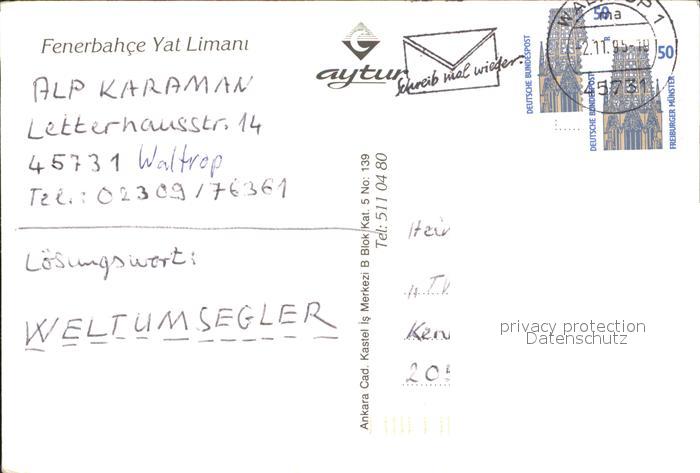 Fenerbahçe Yat Limanı
aytur
Schreib mal wieder.
WALTROP 1
ma
-2.11.95-18
45731
50
50
DEUTSCHE BUNDESPOST
DEUTSCHE BUNDESPOST
FREIBURGER MÜNSTER
ALP KARAMAN
Letterhausstr. 14
45731 Waltrop
Tel.: 02309/76361
Lösungswort:
WELTUMSEGLER
Ankara Cad. Kastel İş Merkezi B Blok Kat. 5 No: 139
Tel: 511 04 80
privacy protection
Datenschutz